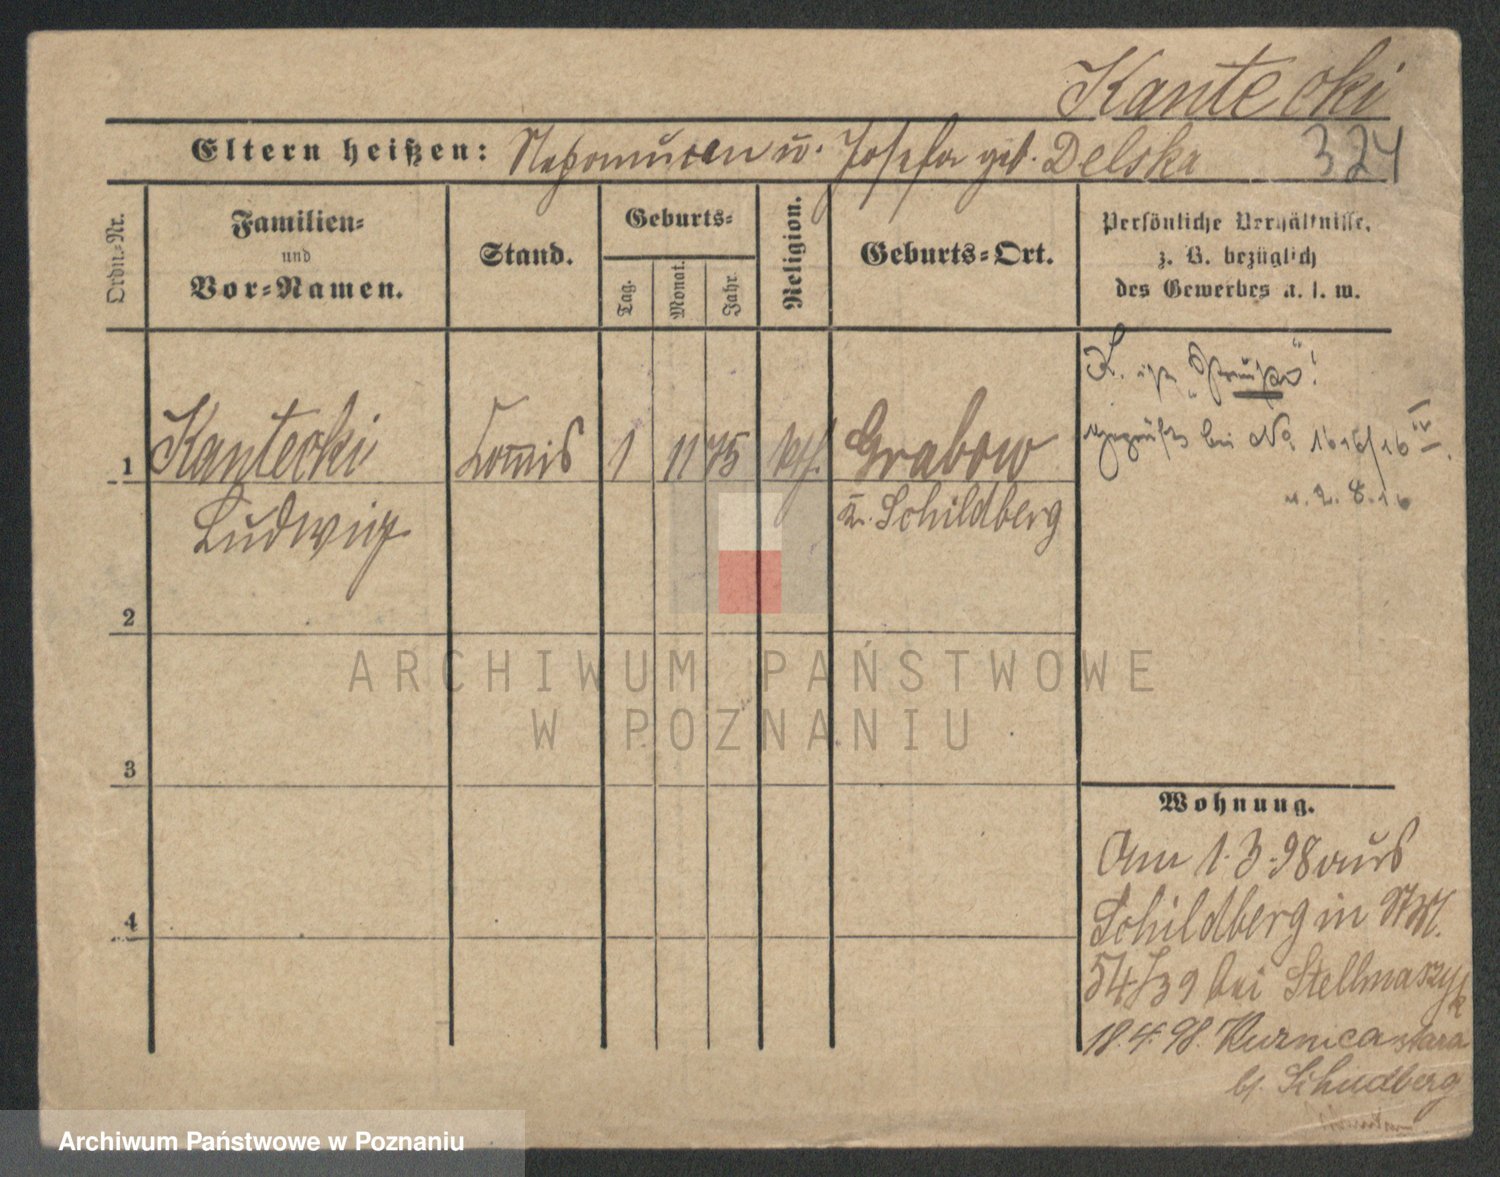 Kantecki
Eltern heißen: Nepomucen u. Josefa geb. Delska 324
Ordn.-Nr.
Familien-
und
Vor-Namen.
Stand.
Geburts-
Tag.
Monat.
Jahr
Religion.
Geburts-Ort.
Persönliche Verhältnisse,
z. B. bezüglich
des Gewerbes u. s. w.
K. ist „Preuße“!
bei No 1616/16 IV.
2. 8. 16
1 Kantecki Commis 1 11 75 kth. Grabow
Ludwig
Kr. Schildberg
2
3
4
Wohnung.
Am 1.3.98 aus
Schildberg in StM.
54/39 bei Stellmaszyk
18.4.98. Kuznica stara
b/ Schildberg
ARCHIWUM PAŃSTWOWE
W POZNANIU
Archiwum Państwowe w Poznaniu